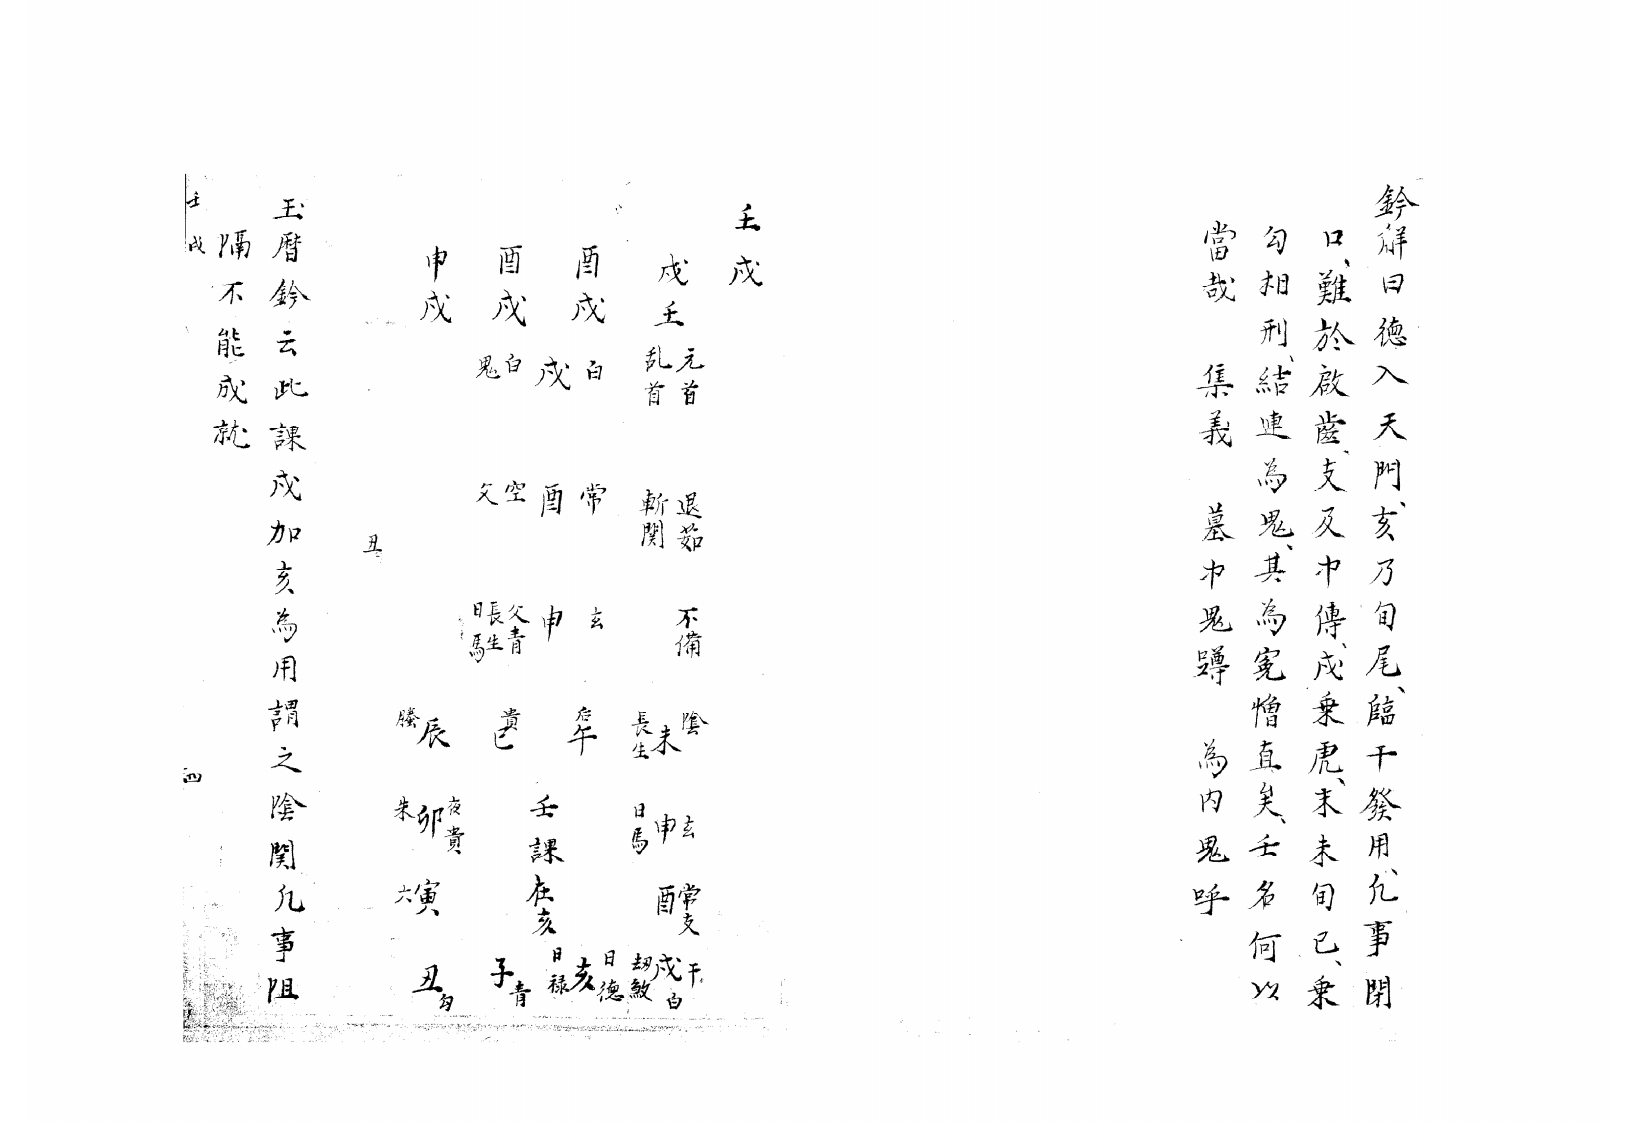 鈐解曰德入天門、亥乃旬尾、臨干發用、凡事閉
口、難於啟齒、支及中傳、戍乗虎、末未旬已、乗
勾相刑、結連為鬼、其為寃憎直矣、壬名何以
當哉　集義　墓中鬼蹲　為内鬼呼
壬戍
戍壬　元首　乱首　退茹　斬関　不備
酉戍
酉戍
申戍
白　戍　白鬼
常　酉　空父
玄　申　父青　長生　日馬
陰未長生　后午　貴巳　辰螣
玄申日馬　夜貴卯朱
常支酉　寅六
干戍白劫煞　日德亥日禄　子青　丑勾
壬課在亥
丑
玉暦鈐云此課戍加亥為用謂之陰関凡事阻
隔不能成就
壬戍
四